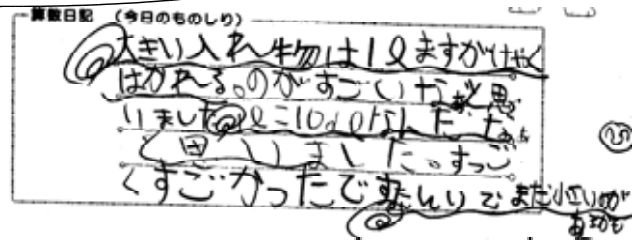 算数日記 (今日のものしり)
大きい入れ物は1ℓますがはやく
はかれる。のがすごいなあと思
りました ℓ=10dℓなんだな
と思いました。すっご
くすごかったです たしりで まだ小さいのが
あるかも